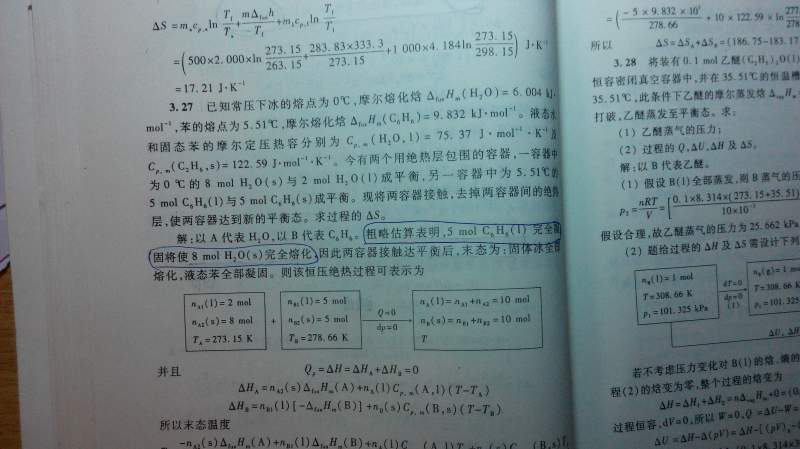 ΔS = m_s c_{p,s} ln T_f/T_s + mΔ_fus h/T_f + m_l c_{p,l} ln T_f/T_l
= (500×2.000×ln 273.15/263.15 + 283.83×333.3/273.15 + 1 000×4.184ln 273.15/298.15) J·K⁻¹
= 17.21 J·K⁻¹
3.27 已知常压下冰的熔点为0℃,摩尔熔化焓Δ_fus H_m(H₂O) = 6.004 kJ·
mol⁻¹,苯的熔点为5.51℃,摩尔熔化焓Δ_fus H_m(C₆H₆) = 9.832 kJ·mol⁻¹。液态水
和固态苯的摩尔定压热容分别为C_{p,m}(H₂O,l) = 75.37 J·mol⁻¹·K⁻¹及
C_{p,m}(C₆H₆,s) = 122.59 J·mol⁻¹·K⁻¹。今有两个用绝热层包围的容器,一容器中
为0℃的8 mol H₂O(s)与2 mol H₂O(l)成平衡,另一容器中为5.51℃的
5 mol C₆H₆(l)与5 mol C₆H₆(s)成平衡。现将两容器接触,去掉两容器间的绝热
层,使两容器达到新的平衡态。求过程的ΔS。
解:以A代表H₂O,以B代表C₆H₆。粗略估算表明,5 mol C₆H₆(l)完全凝
固将使8 mol H₂O(s)完全熔化,因此两容器接触达平衡后,末态为:固体冰全部
熔化,液态苯全部凝固。则该恒压绝热过程可表示为
n_A1(l) = 2 mol
n_A2(s) = 8 mol
T_A = 273.15 K
+
n_B1(l) = 5 mol
n_B2(s) = 5 mol
T_B = 278.66 K
Q=0
dp=0
n_A(l) = n_A1 + n_A2 = 10 mol
n_B(s) = n_B1 + n_B2 = 10 mol
T
并且 Q_p = ΔH = ΔH_A + ΔH_B = 0
ΔH_A = n_A2(s)Δ_fus H_m(A) + n_A(l)C_{p,m}(A,l)(T−T_A)
ΔH_B = n_B1(l)[−Δ_fus H_m(B)] + n_B(s)C_{p,m}(B,s)(T−T_B)
所以末态温度
−n_A2(s)Δ_fus H_m(A) + n_B1(l)Δ_fus H_m(B) + n_A(l)C
= (−5×9.832×10³/278.66 + 10×122.59×ln 277.
278
所以 ΔS = ΔS_A + ΔS_B = (186.75−183.17
3.28 将装有0.1 mol乙醚(C₂H₅)₂O(l)
恒容密闭真空容器中,并在35.51℃的恒温槽
35.51℃,此条件下乙醚的摩尔蒸发焓Δ_vap H_m=
打破,乙醚蒸发至平衡态。求:
(1) 乙醚蒸气的压力;
(2) 过程的Q,ΔU,ΔH及ΔS。
解:以B代表乙醚。
(1) 假设B(l)全部蒸发,则B蒸气的压
p₂ = nRT/V = [0.1×8.314×(273.15+35.51)/10×10⁻³
假设合理,故乙醚蒸气的压力为25.662 kPa
(2) 题给过程的ΔH及ΔS需设计下列
n_B(l) = 1 mol
T=308.66 K
p₁=101.325 kPa
dT=0
dp=0
(1)
n_B(g) = 1 mol
T=308.66 K
p₁=101.325
ΔU, ΔH
若不考虑压力变化对B(l)的焓,熵的
程(2)的焓变为零,整个过程的焓变为
ΔH = ΔH₁ + ΔH₂ = nΔ_vap H_m + 0 = (0.
过程恒容,dV=0,所以W=0,Q=ΔU−W=
ΔU = ΔH−Δ(pV) = ΔH−[(pV)_g−